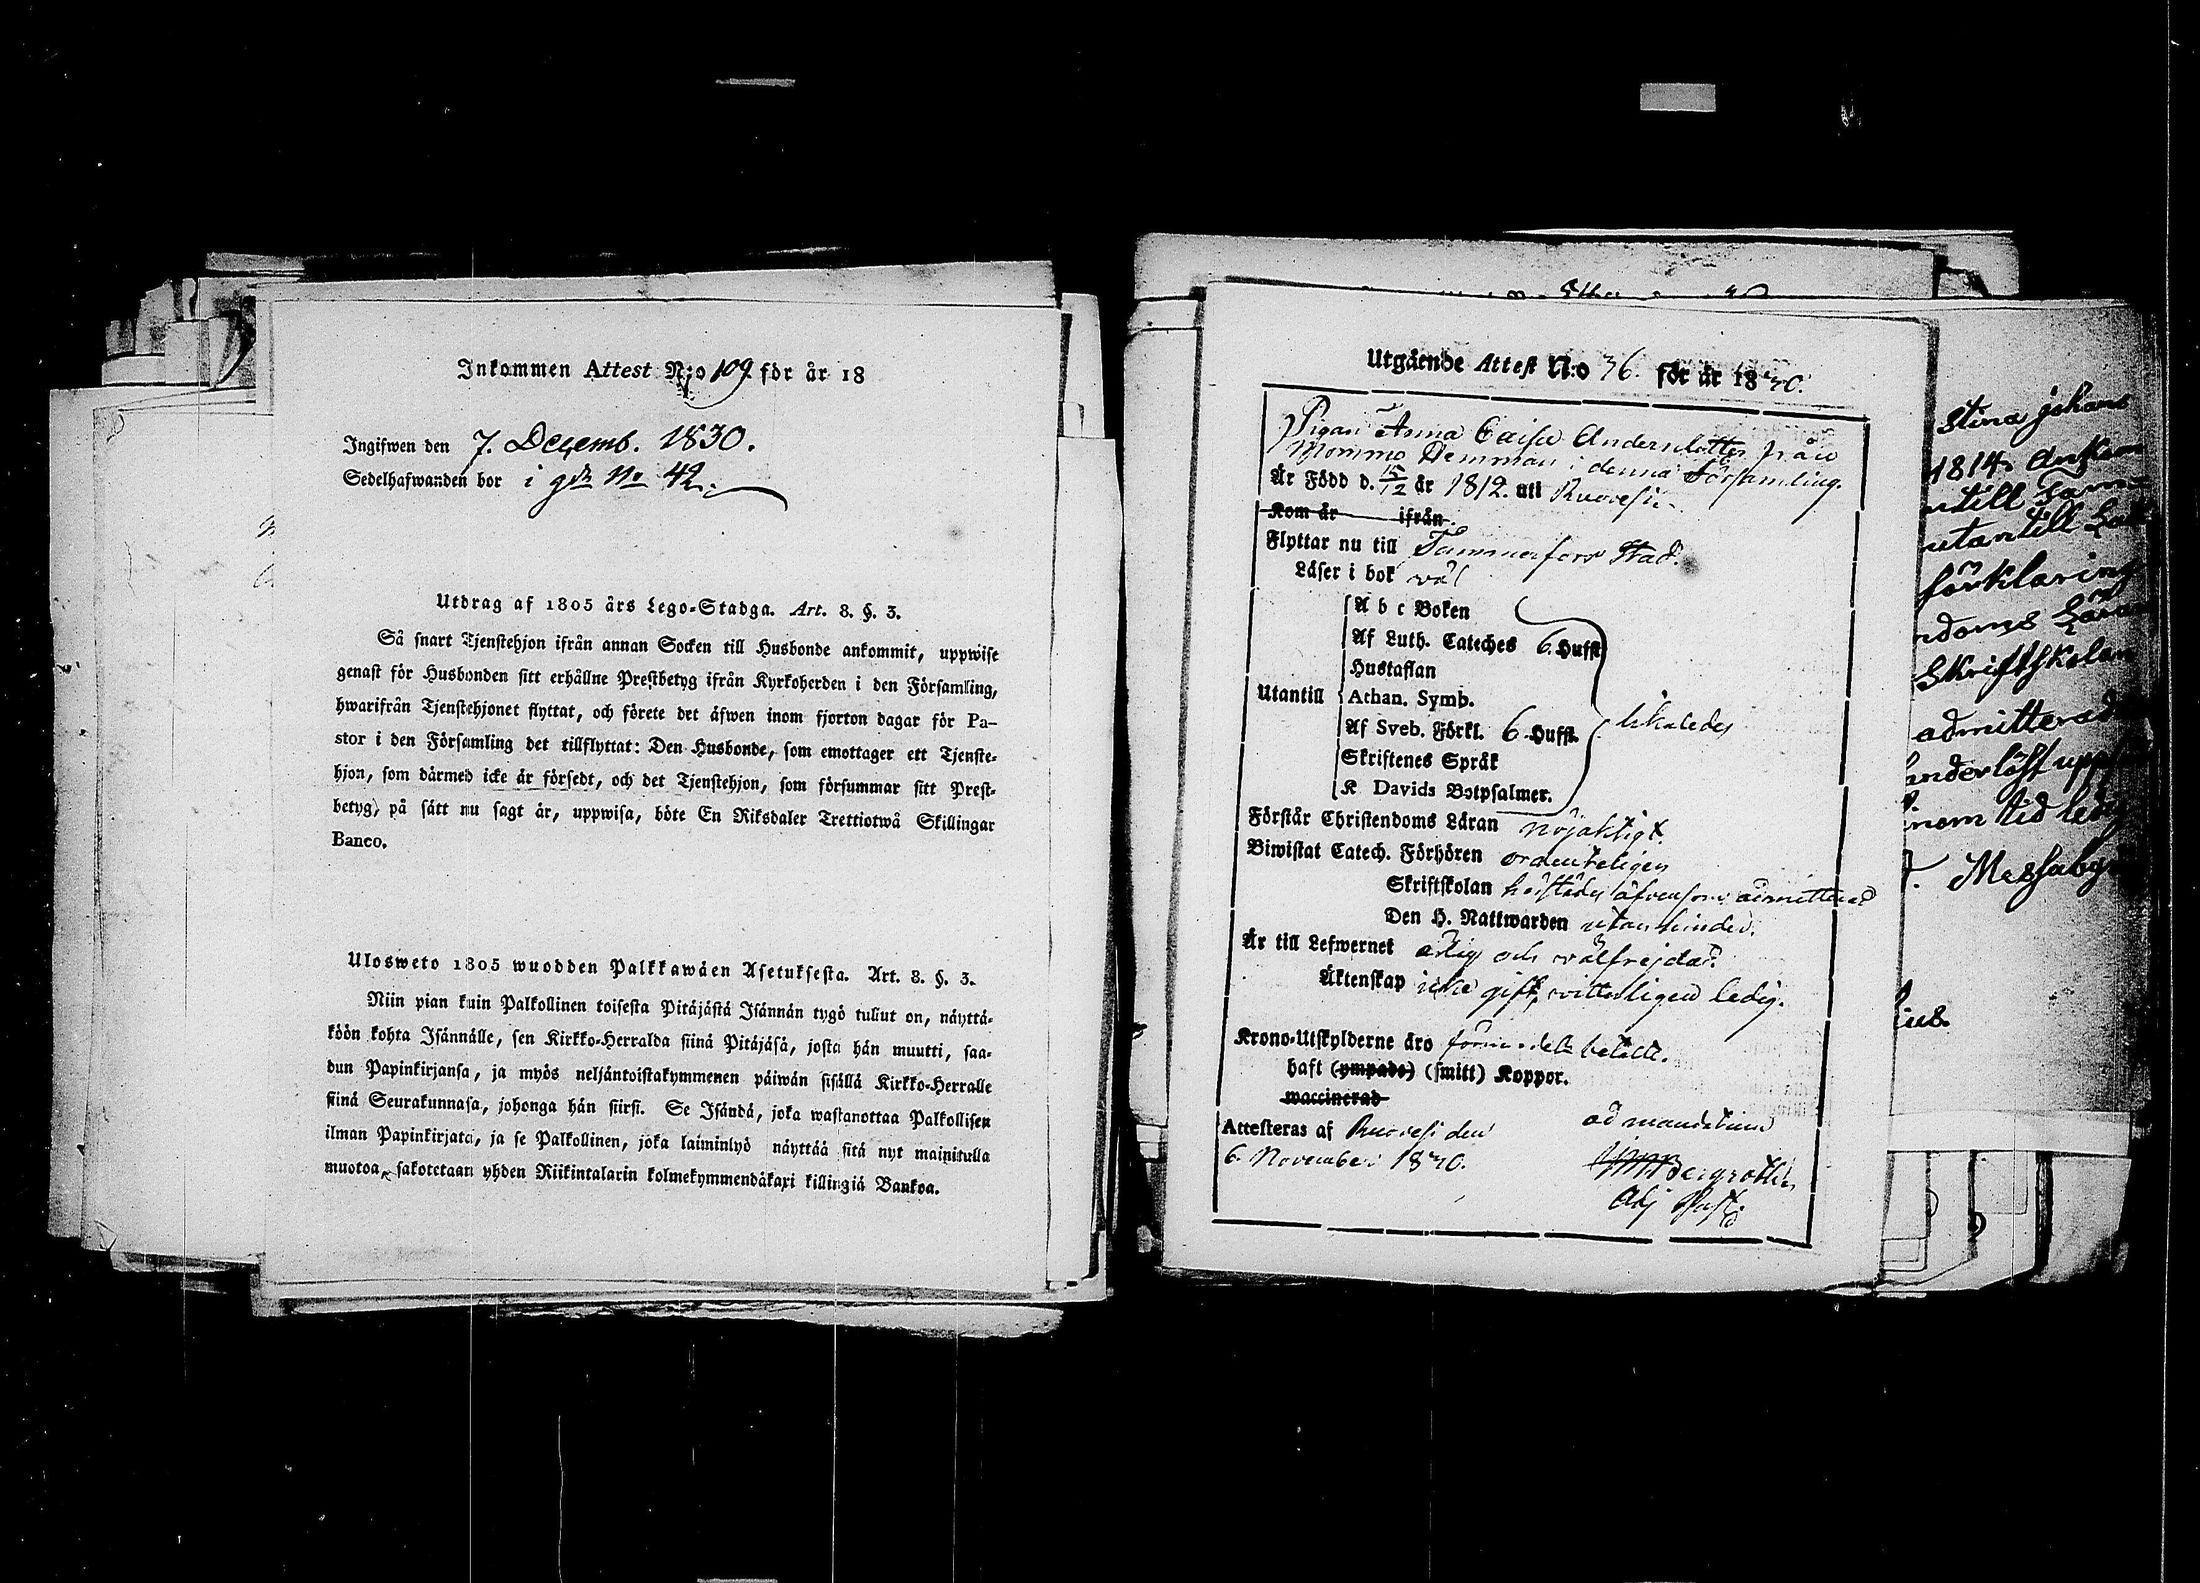 Inkommen Attest N:o 109 för år 18
Ingifwen den 7. Decemb. 1830.
Sedelhafwanden bor i gdn No 42.
Utdrag af 1805 års Lego-Stadga. Art. 8. §. 3.
Så snart Tjenstehjon ifrån annan Socken till Husbonde ankommit, uppwise
genast för Husbonden sitt erhållne Prestbetyg ifrån Kyrkoherden i den Församling,
hwarifrån Tjenstehjonet flyttat, och förete det äfwen inom fjorton dagar för Pa-
stor i den Församling det tillflyttat: Den Husbonde, som emottager ett Tjenste-
hjon, som därmed icke är försedt, och det Tjenstehjon, som försummar sitt Prest-
betyg, på sätt nu sagt är, uppwisa, böte En Riksdaler Trettiotwå Skillingar
Banco.
Ulosweto 1805 wuodden Palkkawäen Asetuksesta. Art. 8. §. 3.
Niin pian kuin Palkollinen toisesta Pitäjästä Isännän tygö tullut on, näyttä-
köön kohta Isännälle, sen Kirkko-Herralda siinä Pitäjäsä, josta hän muutti, saa-
dun Papinkirjansa, ja myös neljäntoistakymmenen päiwän sisällä Kirkko-Herralle
siinä Seurakunnasa, johonga hän siirsi. Se Isändä, joka wastanottaa Palkollisen
ilman Papinkirjata, ja se Palkollinen, joka laiminlyö näyttää sitä nyt mainitulla
muotoa, sakotetaan yhden Riikintalarin kolmekymmendäkaxi killingiä Bankoa.
Utgående Attest N:o 36. för år 1830.
Pigan Anna Caisa Andersdotter från
Mommo Hemman i denna Församling.
Är Född d. 15/12 år 1812. uti Ruovesi.
Kom år ifrån
Flyttar nu till Tammerfors Stad.
Läser i bok wäl
A b c Boken
Af Luth. Cateches 6. Hufst.
Hustaflan
Utantill Athan. Symb.
likaledes
Af Sveb. Förkl. 6. Hufst.
Skriftenes Språk
K Davids Botpsalmer.
Förstår Christendoms Läran nöjaktigt.
Biwistat Catech. Förhören ordenteligen
Skriftskolan härstädes äfvensom admitterad
Den H. Nattwarden utan hinder.
Är till Lefwernet ärlig och välfrejdad.
Äktenskap icke gift, vitterligen ledig.
Krono-Utskylderne äro betalte.
haft (ympade) (smitt) Koppor.
waccinerad
Attesteras af Ruovesi den ad mandatum
6. November 1830. Bergroth
Adj Past
Stina Johans
1814. Ankom
förklaring
Skriftskolan
admitterad